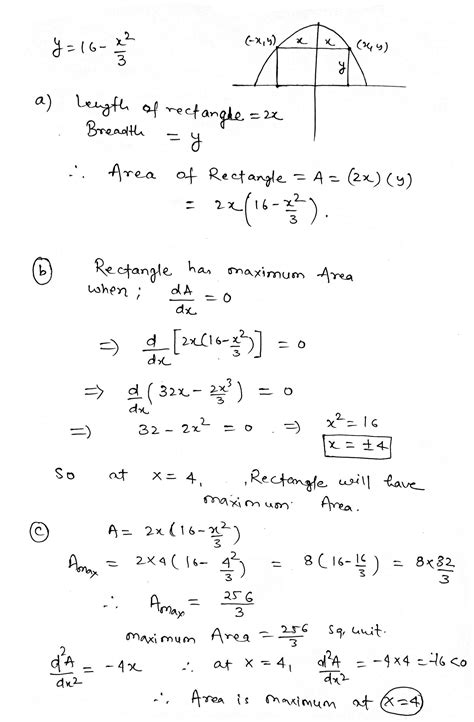 y = 16 - x²/3
(-x, y) x x (x, y)
y
a) Length of rectangle = 2x
Breadth = y
∴ Area of Rectangle = A = (2x) (y)
= 2x(16 - x²/3).
(b) Rectangle has maximum Area
when ; dA/dx = 0
⇒ d/dx [2x(16 - x²/3)] = 0
⇒ d/dx (32x - 2x³/3) = 0
⇒ 32 - 2x² = 0 . ⇒ x² = 16
x = ±4
So at x = 4, , Rectangle will have
maximum Area.
(c) A = 2x(16 - x²/3)
Amax = 2×4(16 - 4²/3) = 8(16 - 16/3) = 8×32/3
∴ Amax = 256/3
maximum Area = 256/3 sq, unit.
d²A/dx² = -4x ∴ at x = 4, d²A/dx² = -4×4 = -16 <0
∴ Area is maximum at x=4